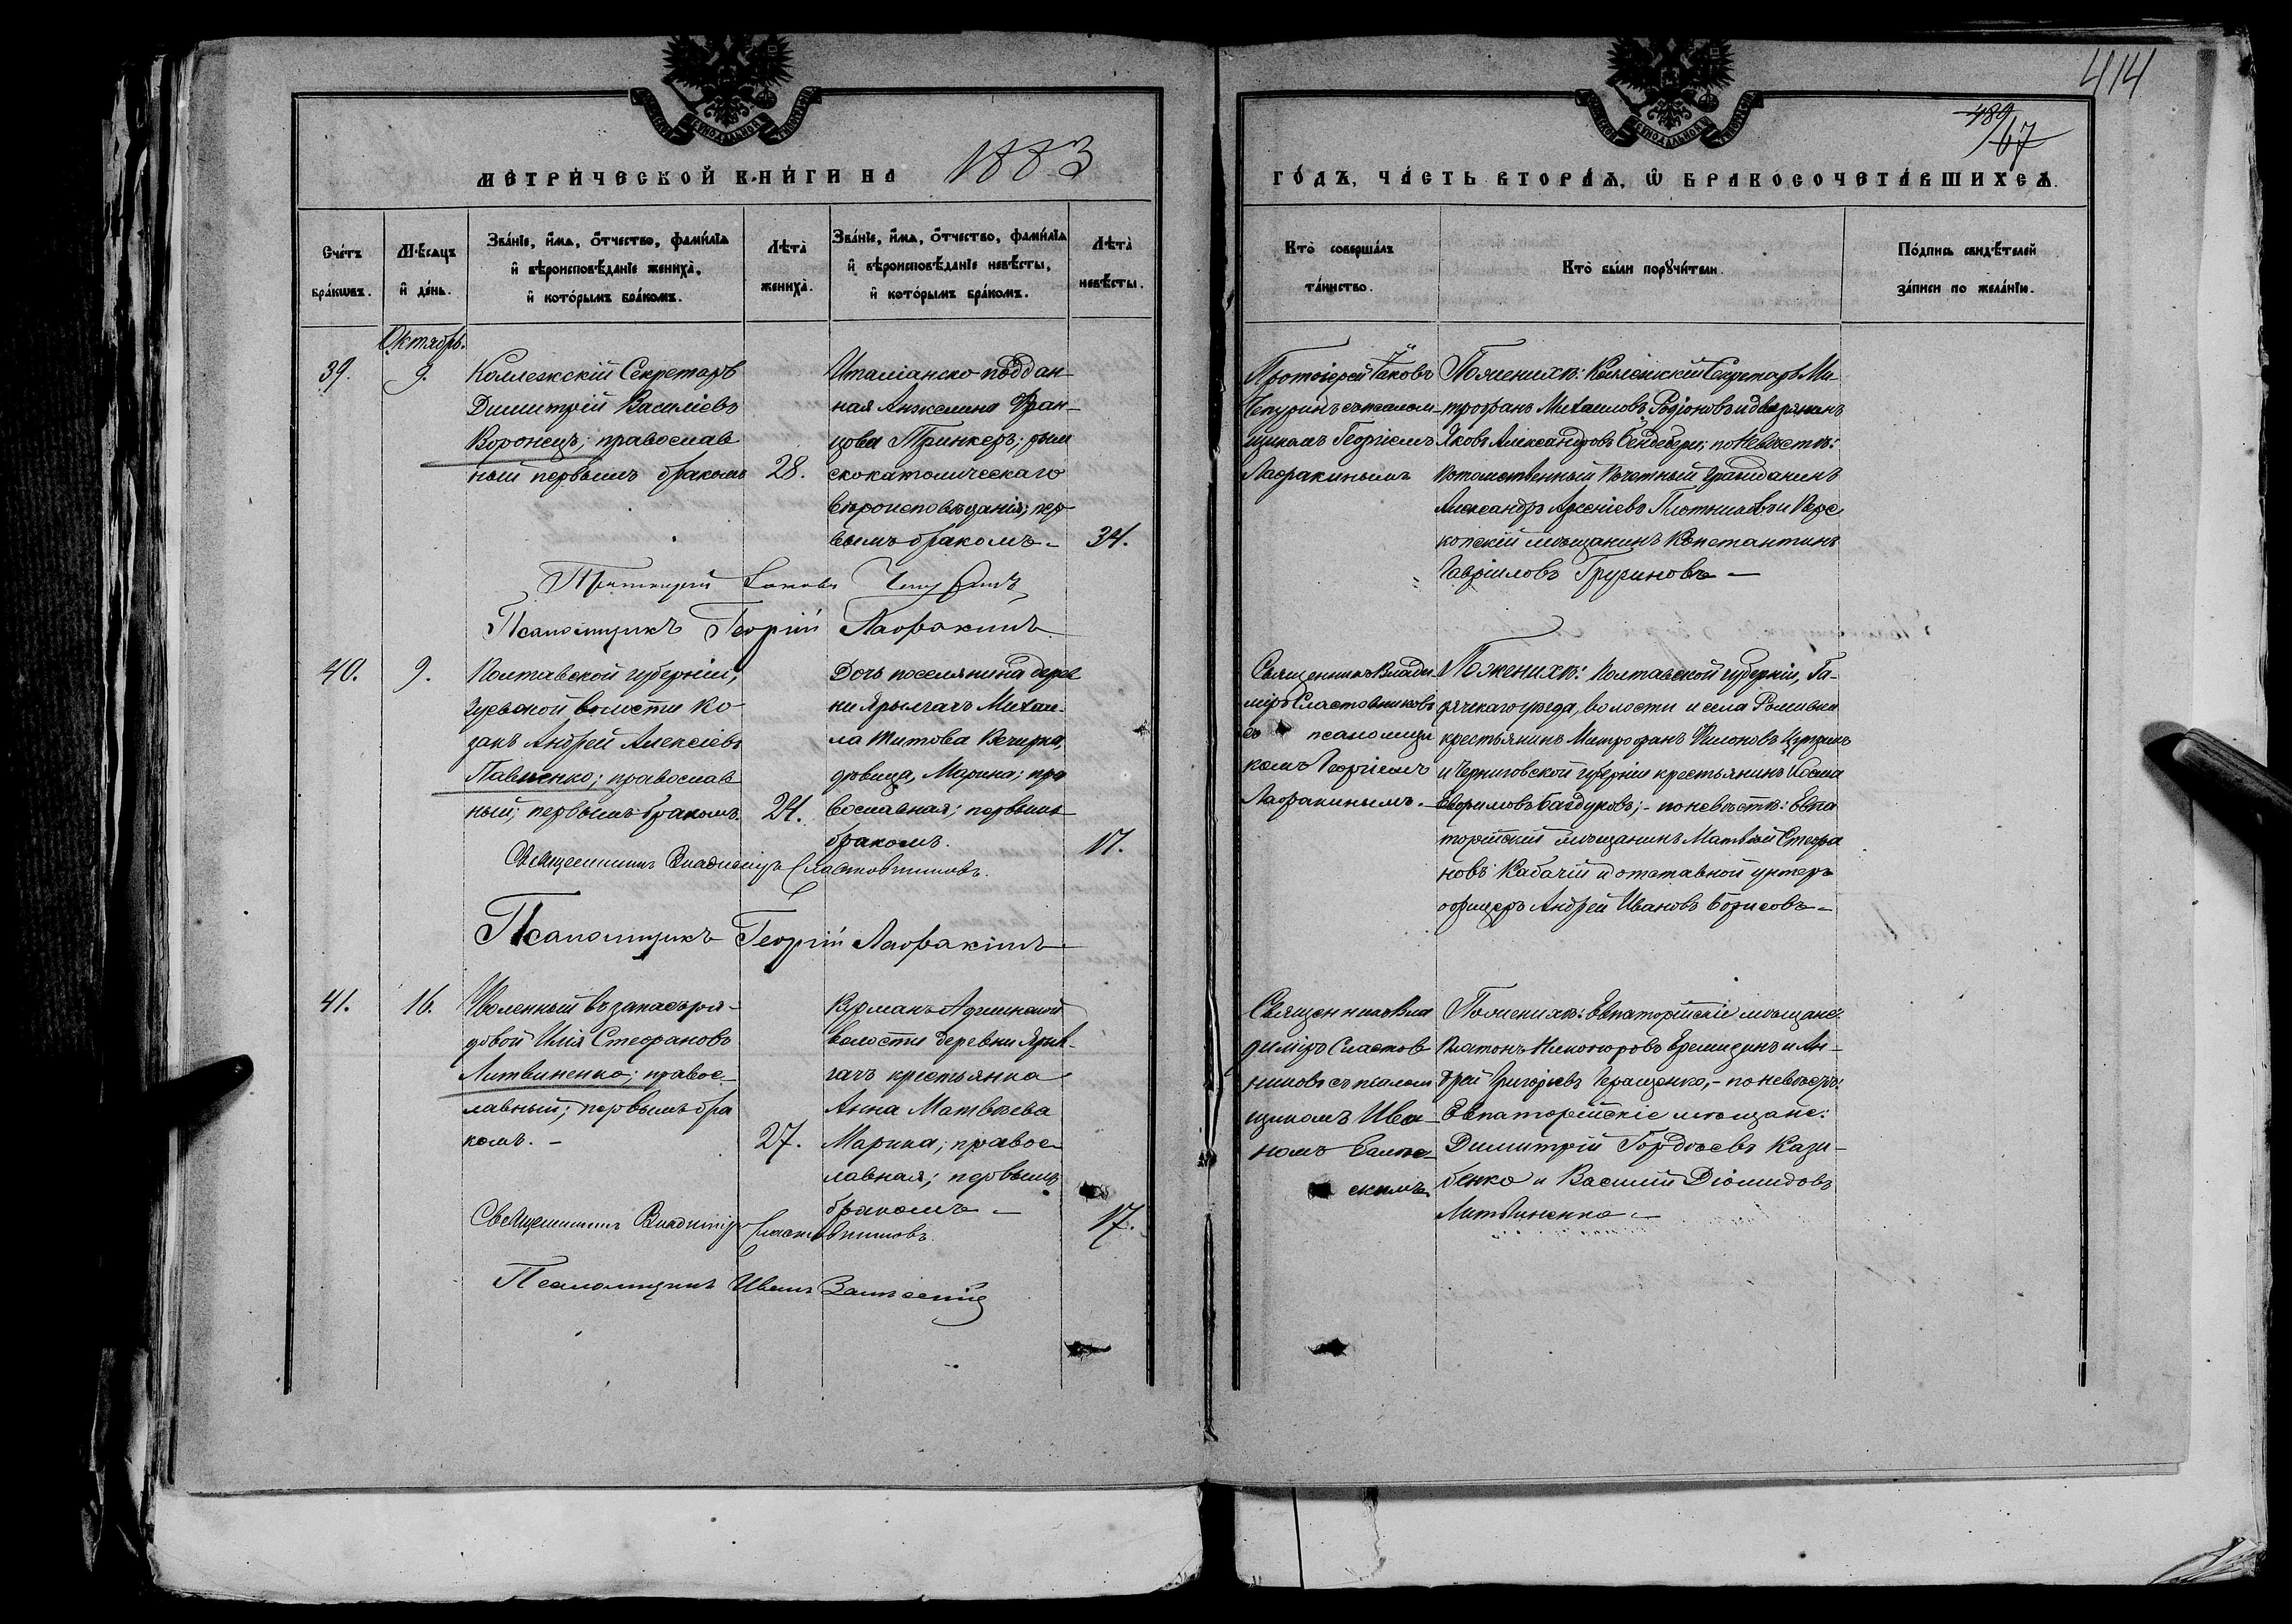 414
489
67
МЕТРИЧЕСКОЙ КНИГИ НА 1883
ГОДЪ, ЧАСТЬ ВТОРАЯ, Ѡ БРАКОСОЧЕТАВШИХСЯ.
Счетъ браковъ.
Мѣсяцъ и день.
Званіе, имя, отчество, фамилія
и вѣроисповѣданіе жениха,
и которымъ бракомъ.
Лѣта жениха.
Званіе, имя, отчество, фамилія
и вѣроисповѣданіе невѣсты,
и которымъ бракомъ.
Лѣта невѣсты.
Кто совершалъ таинство.
Кто были поручители.
Подпись свидѣтелей
записи по желанію.
Октябрь.
39.
9.
Коллежскій Секретарь
Димитрій Василіевъ
Воронецъ; православ
ный первымъ бракомъ
28.
Италіанско поддан-
ная Анжелина Фран-
цова Тринкеръ; рим
скокатолическаго
вѣроисповѣданія; пер
вымъ бракомъ.-
34.
Протоіерей Іаковъ
Чепуринъ съ псалом-
щикомъ Георгіемъ
Лафракинымъ
По женихѣ: Коллежскій Секретарь Ми-
трофанъ Михаиловъ Родіоновъ и дворянинъ
Яковъ Александровъ; по невѣстѣ:
потомственный почетный гражданинъ
Александръ Арсеніевъ Плотниковъ и Пере
копскій мѣщанинъ Константинъ
Гавріиловъ Грузиновъ -
Протоіерей Іаковъ Чепуринъ
Псаломщикъ Георгій Лафракинъ
40.
9.
Полтавской губерніи,
волости ко
закъ Андрей Алексіевъ
Павленко; православ
ный; первымъ бракомъ.
24.
Дочь поселянина дерев
ни Ярылгачъ Михаи-
ла Титова Вечирка,
дѣвица, Марина; пра
вославная; первымъ
бракомъ.
17.
Священникъ Влади
міръ Сластовниковъ
съ псаломщи
комъ Георгіемъ
Лафракинымъ.
По женихѣ: Полтавской губерніи, Га-
дячскаго уѣзда, волости и села
крестьянинъ Митрофанъ Филоновъ
и Черниговской губерніи крестьянинъ Козма
Ефимовъ;- по невѣстѣ: Евпа
торійскій мѣщанинъ Матвѣй Стефа
новъ Кабачій и отставной унтеръ
офицеръ Андрей Ивановъ Борисовъ -
Священникъ Владиміръ Сластовниковъ.
Псаломщикъ Георгій Лафракинъ
41.
16.
Уволенный въ запасъ ря-
довой Илія Стефановъ
Литвиненко; правос-
лавный; первымъ бра
комъ. -
27.
Курманъ Аджинской
волости деревни Ярыл-
гачъ крестьянка
Анна Матвѣева
Марина; правос-
лавная; первымъ
бракомъ -
17.
Священникъ Вла
диміръ Сластов
никовъ съ псалом
щикомъ Ива-
номъ
скимъ
По женихѣ: Евпаторійскіе мѣщане:
Платонъ Никаноровъ и Ан-
дрей Григорьевъ Геращенко, - по невѣстѣ:
Евпаторійскіе мѣщане:
Димитрій Гордѣевъ Кази-
бенко и Василій Діомидовъ
Литвиненко -
Священникъ Владиміръ Сластовниковъ.
Псаломщикъ Иванъ